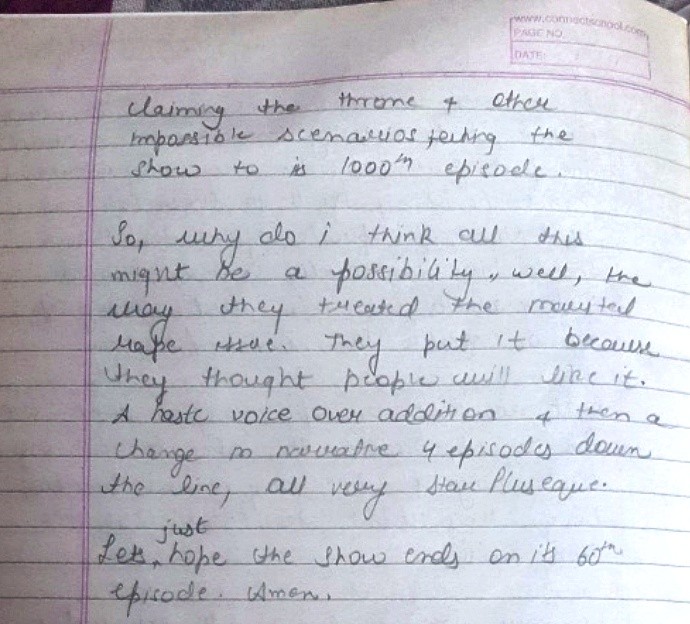 www.connectschool.com
PAGE NO.
DATE:
claiming the throne & other
impossible scenarios, taking the
show to is 1000th episode.
So, why do i think all this
might be a possibility, well, the
way they treated the marital
rape issue. They put it because
they thought people will like it.
A haste voice over addition & then a
change in narrative 4 episodes down
the line, all very Star Plus eque.
just
Lets, hope the show ends on its 60th
episode. Amen.